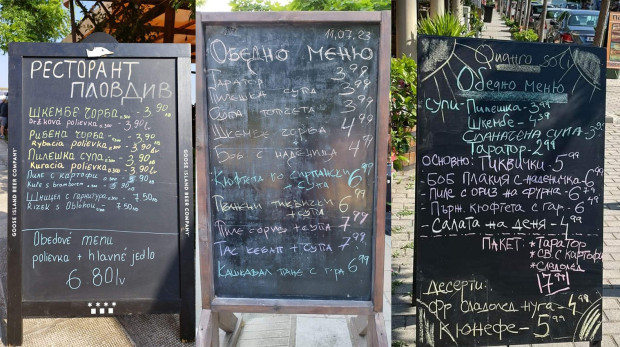 РЕСТОРАНТ
ПЛОВДИВ
ШКЕМБЕ ЧОРБА 3,90
Držková polievka 3,90 lv
РИБЕНА ЧОРБА 3,90
Rybacia polievka 3,90 lv
ПИЛЕШКА СУПА 3,90
Kuracia polievka 3,90 lv
ПИЛЕ С КАРТОФИ
ШНИЦЕЛ С ГАРНИТУРА 7,50
Obedové menu
polievka + hlavné jedlo
6.80lv
GOOSE ISLAND BEER COMPANY
GOOSE ISLAND BEER COMPANY
11,07.23
ОБЕДНО МЕНЮ
ТАРАТОР 3,99
ПИЛЕШКА СУПА 3,99
СУПА ТОПЧЕТА 3,99
ШКЕМБЕ ЧОРБА 4,99
БОБ С НАДЕНИЦА 4,99
+ СУПА 6,99
ПЪЛНЕНИ ТИКВИЧКИ + СУПА 6,99
ПИЛЕ ГОРИЗ + СУПА 7,99
ТАС КЕБАП + СУПА 7,99
КАШКАВАЛ ПАНЕ С ГАР. 6,99
Обедно меню
СУПИ - ПИЛЕШКА - 3,99
ШКЕМБЕ - 4,99
СПАНАЧЕНА СУПА - 3,99
ТАРАТОР - 2,99
ОСНОВНО: ТИКВИЧКИ - 5,99
БОБ ПЛАКИЯ С НАДЕНИЧКА - 6,99
ПИЛЕ С ОРИЗ НА ФУРНА - 6,99
ПЪРЖ. КЮФТЕТА С ГАР. - 6,99
- САЛАТА НА ДЕНЯ - 4,99
ПАКЕТ: *ТАРАТОР
*СВ. С КАРТОФИ
*СЛАДОЛЕД
7,99
ДЕСЕРТИ:
ФР. СЛАДОЛЕД НУГА - 4,99
КЮНЕФЕ - 5,99